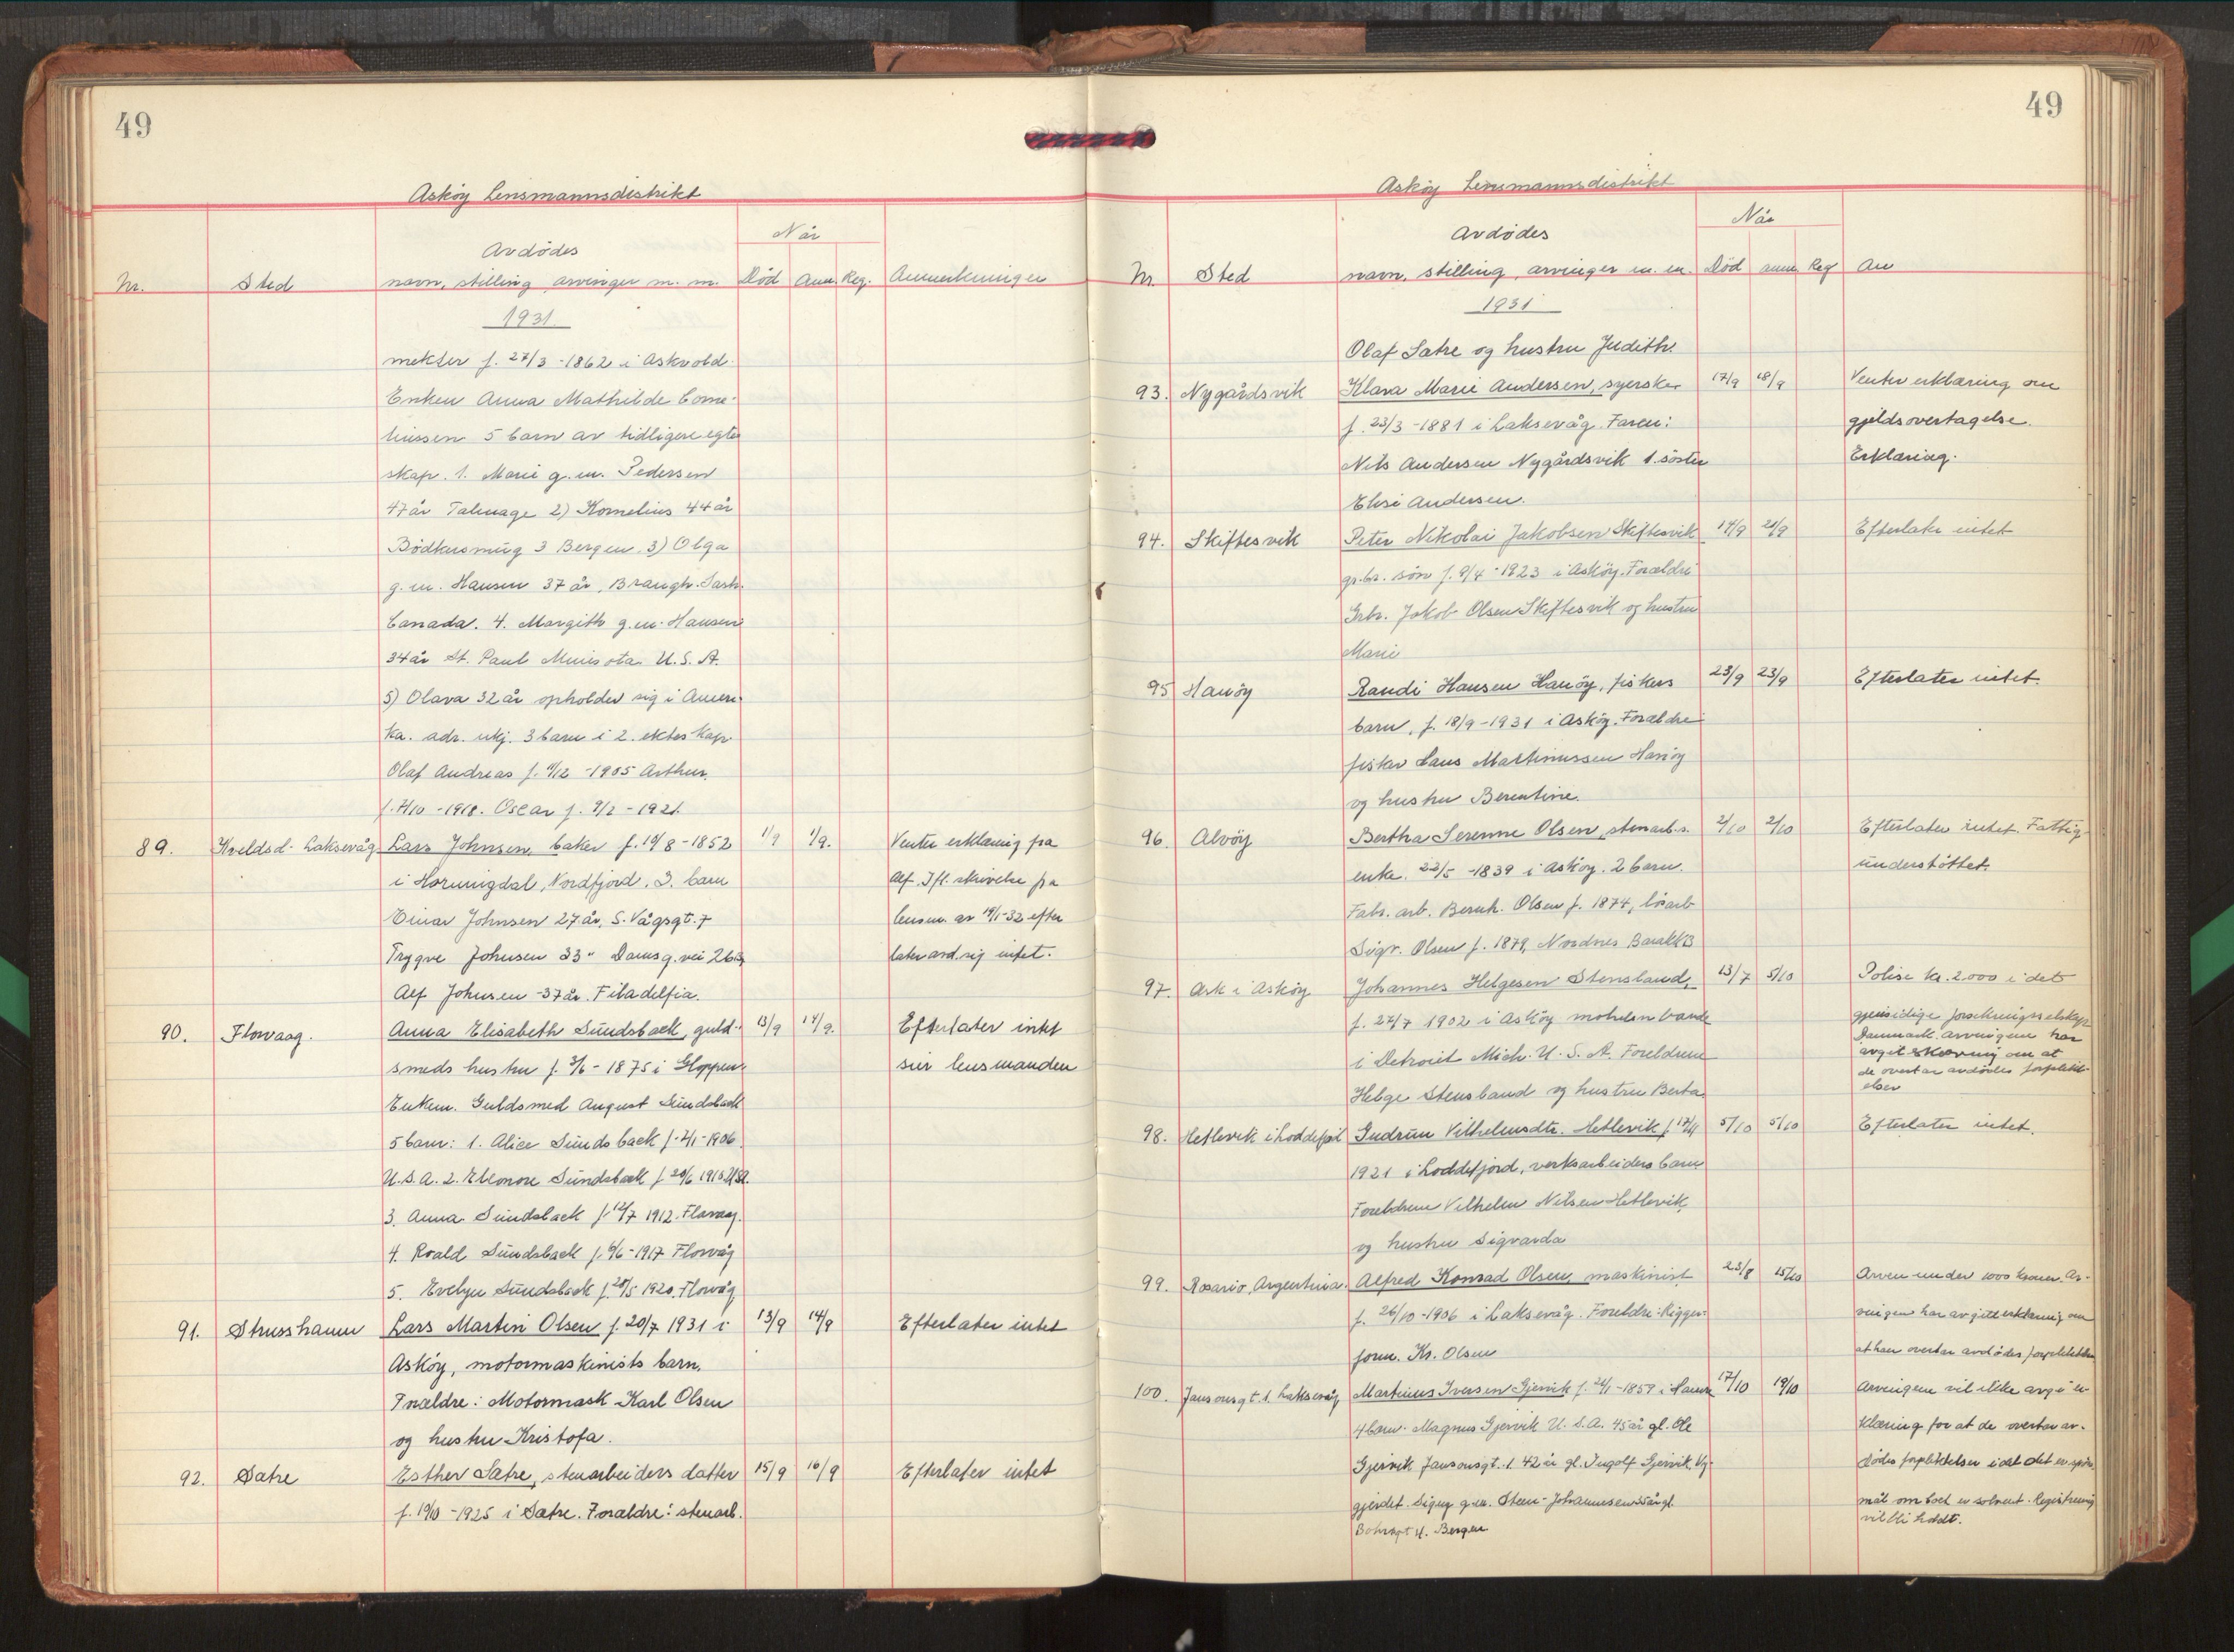 49
Askøy Lensmannsdistrikt
Når
Avdødes
Nr. Sted navn, stilling arvinger m. m. Død Anm. Reg. Anmerkninger
1931
mekler f. 27/3 - 1862 i Askvold.
Enken Anna Mathilde Corne-
liussen 5 barn av tidligere egte
skap. 1. Marie g.m. Pedersen
47 år Talmage 2) Kornelius 44 år
Bødkersmug 3 Bergen. 3) Olga
g.m. Hansen 37 år, Sask.
Canada. 4. Margith g.m. Hansen
34 år St. Paul Minisota U.S.A.
5) Olava 32 år opholder sig i Ameri-
ka. adr. ukj. 3 barn i 2. ekteskap
Olaf Andreas f. /12 - 1905 Arthur
f. /10 - 1910. Oscar f. 9/2 - 1921.
89. Laksevåg Lars Johnsen, baker f. 10/8 - 1852 1/9 1/9. Venter erklæring fra
i Hornigdal, Nordfjord. 3. barn Alf. Ifl. skrivelse fra
Einar Johnsen 27 år, S. Vågsgt. 7 lensm. av 19/1-32 efter
Trygve Johnsen 33 " Damsg. vei 26B later avd. sig intet.
Alf Johnsen - 37 år. Filadelfia.
90. Florvaag. Anna Elisabeth Sundsback, guld- 13/9 14/9. Efterlater intet
smeds hustru f. 3/6 - 1875 i Gloppen. sier lensmanden
Enkem. Guldsmed August Sundsback
5 barn: 1. Alice Sundsback f. 2/1 - 1906.
U.S.A. 2. Eleonore Sundsback f 20/6 1910 USA.
3. Anna Sundsback f. 12/7 1912. Florvaag.
4. Roald Sundsback f. 6/6 - 1917 Florvåg
5. Evelyn Sundsback f. 20/5 1920. Florvåg
91. Strusshamn Lars Martin Olsen f. 20/7 1931 i 13/9 14/9 Efterlater intet
Askøy, motormaskinists barn.
Forældre: Motormask Karl Olsen
og hustru Kristofa.
92. Sætre Esther Sætre, stenarbeiders datter 15/9 16/9 Efterlater intet
f. 19/10 - 1925 i Sætre. Forældre: stenarb.
49
Askøy Lensmannsdistrikt
Når
Avdødes
Nr. Sted navn, stilling, arvinger m. m. Død anm. Reg An
1931
Olaf Sætre og hustru Judith.
93. Nygårdsvik Klara Marie Andersen, syerske 17/9 18/9 Venter erklæring om
f. 23/3 - 1881 i Laksevåg. Faren: gjeldsovertagelse.
Nils Andersen Nygårdsvik 1. søster Erklæring.
Elisi Andersen.
94. Skiftesvik Peter Nikolai Jakobsen Skiftesvik 17/9 21/9 Efterlater intet
gr.br. søn f. 9/4 - 1923 i Askøy. Forældre
Grbr. Jakob Olsen Skiftesvik og hustru
Marie
95 Hanøy Randi Hansen Hanøy, fiskers 23/9 23/9 Efterlater intet.
barn, f. 18/9 - 1931 i Askøy. Forældre
fisker Hans Martinussen Hanøy
og hustru Berentine.
96. Alvøy Bertha Serenne Olsen, stenarb.s. 2/10 2/10 Efterlater intet. Fattig-
enke. 22/5 - 1839 i Askøy. 2 barn. understøttet.
Fabr. arb. Bernh. Olsen f. 1874, løsarb
Sigv. Olsen f. 1879, Nordnes
97. Ask i Askøy Johannes Helgesen Stensland, 13/7 5/10 Polise kr. 2000 i det
f. 27/7 1902 i Askøy gjensidige forsikringsselskap
i Detroit Mich. U.S.A. Foreldrene Danmark. arvingene har
Helge Stensland og hustru Berta avgit erklæring om at
de overtar avdødes forplikt-
elser
98. Hetlevik i Loddefjord Gudrun Vilhelmsdtr. Hetlevik f. 17/11 5/10 5/10 Efterlater intet.
1921 i Loddefjord, verksarbeiders barn
Foreldrene Vilhelm Nilsen Hetlevik,
og hustru Sigvarda
99. Rosario, Argentinia. Alfred Konrad Olsen maskinist 23/8 15/10 Arven under 1000 kroner. Ar-
f. 26/10 - 1906 i Laksevåg. Foreldre: Rigger- vingen har avgitt erklæring om
form. Kr. Olsen at han overtar avdødes forpliktelser
100. Jansonsgt. 1. Laksevåg Martinus Iversen Gjervik f. 21/1 - 1859 i Hamre 17/10 19/10 Arvingene vil ikke avgi er-
4 barn. Magnus Gjervik U.S.A. 45 år gl. Ole klæring for at de overtar av-
Gjervik Jansonsgt. 1. 42 år gl. Ingolf Gjervik, Ny- dødes forpliktelser idet det er spørs-
gjerdet. Signy g.m. Sten-Johannesen gl. mål om boet er solvent. Registrering
Bergen vil bli holdt.